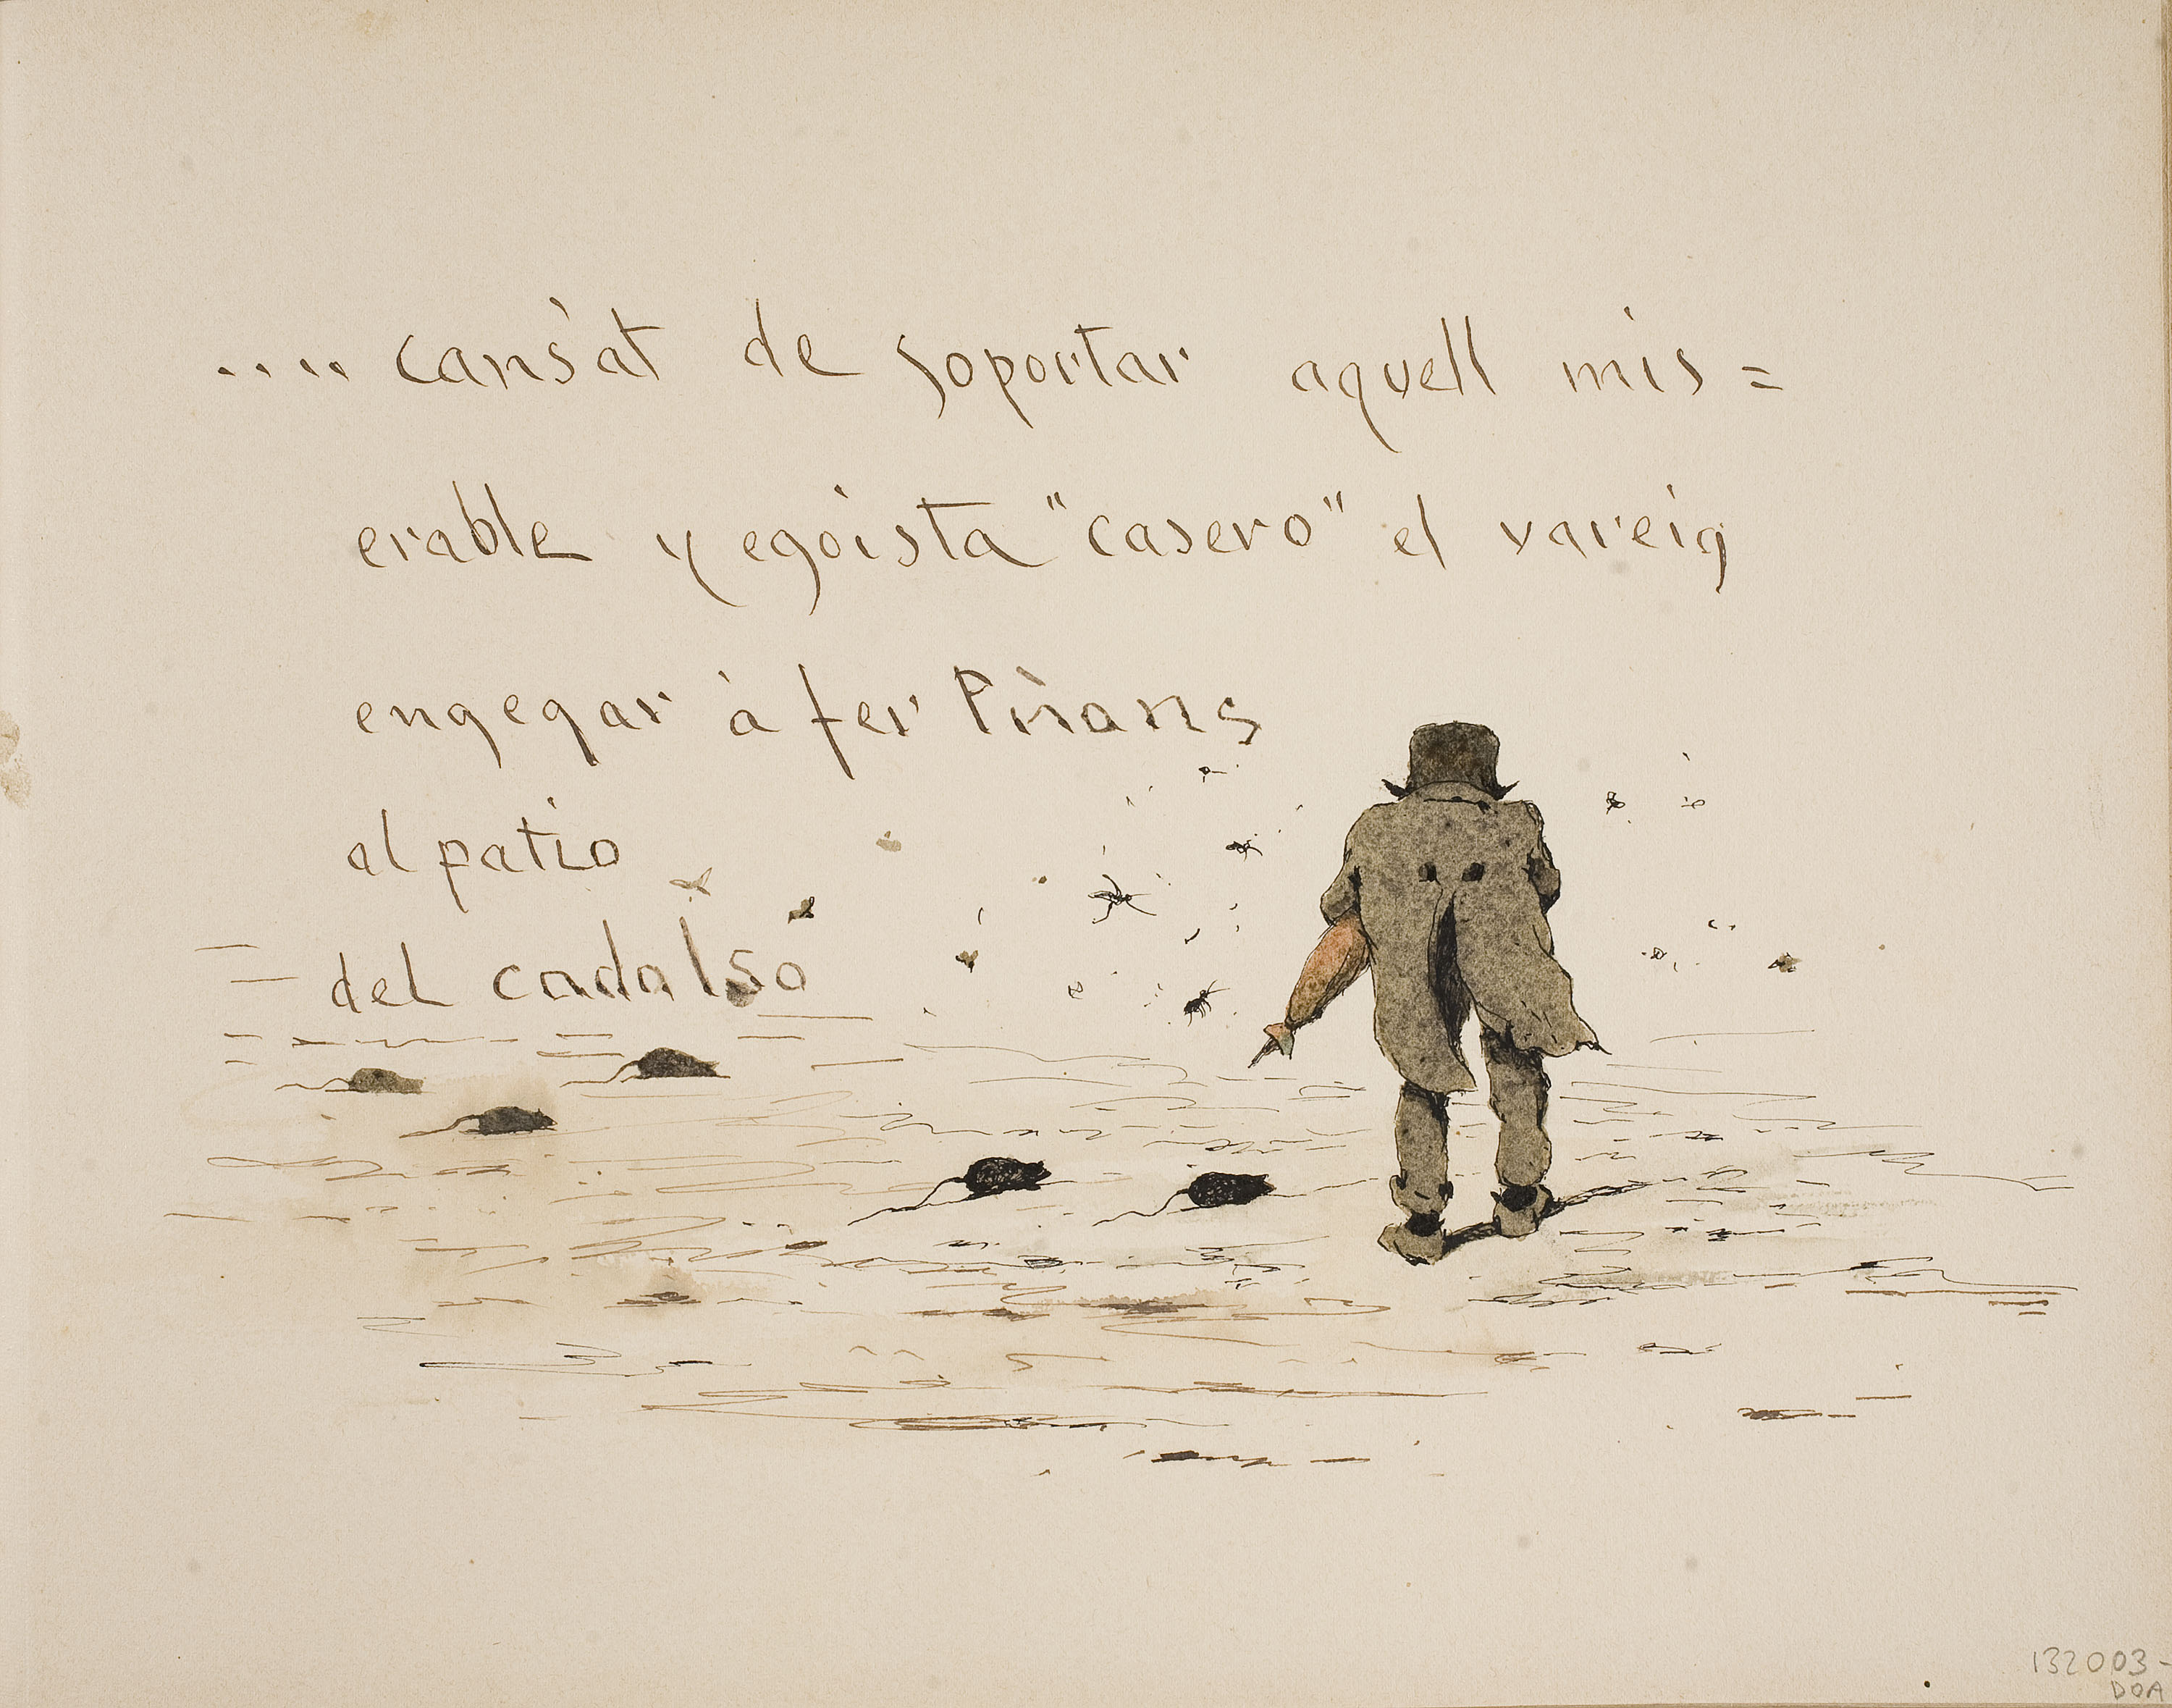 .... cansat de soportar aquell mis=
erable y egoista "casero" el vareig
engegar á fer Piñons
al patio
del cadalso
132003-
DOA